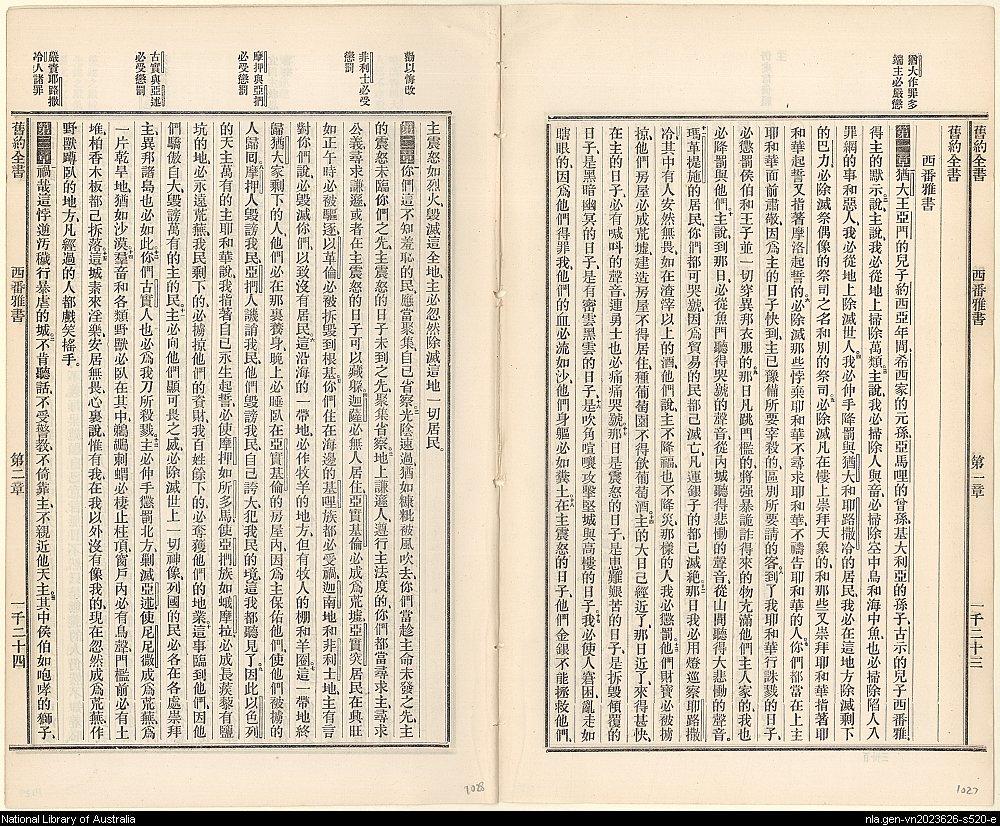 猶大作罪多
端主必嚴懲
舊約全書 西番雅書 第一章 一千二十三
舊約全書
西番雅書
第一章猶大王亞們的兒子約西亞年間希西家的元孫亞馬哩的曾孫基大利亞的孫子古示的兒子西番雅
得主的默示說主說我必從地上掃除萬類主說我必掃除人與畜必掃除空中鳥和海中魚也必掃除陷人入
罪網的事和惡人我必從地上除滅世人我必伸手降罰與猶大和耶路撒冷的居民我必在這地方除滅剩下
的巴力必除滅祭偶像的祭司之名和別的祭司必除滅凡在樓上崇拜天象的和那些又崇拜耶和華指著耶
和華起誓又指著摩洛起誓的必除滅那些悖棄耶和華不尋求耶和華不禱告耶和華的人你們都當在上主
耶和華面前肅敬因為主的日子快到主已豫備所要宰殺的區別所要請的客到了我耶和華行誅戮的日子
必懲罰侯伯和王子並一切穿異邦衣服的那日凡跳門檻的將強暴詭詐得來的物充滿他們主人家的我也
必降罰與他們主說到那日必從魚門聽得哭號的聲音從內城聽得悲慟的聲音從山間聽得大悲慟的聲音
瑪革提施的居民你們都可哭號因為貿易的民都已滅亡凡運銀子的都已滅絕那日我必用燈巡察耶路撒
冷其中有人安然無畏如在渣滓以上的酒他們說主不降福也不降災那樣的人我必懲罰他們財寶必被擄
掠他們房屋必成荒墟建造房屋不得居住種葡萄園不得飲葡萄酒主的大日已經近了那日近了來得甚快
在主的日子必有喊呌的聲音連勇士也必痛痛哭號那日是震怒的日子是患難艱苦的日子是拆毀傾覆的
日子是黑暗幽冥的日子是有密雲黑雲的日子是吹角喧嚷攻擊堅城與高樓的日子我必使人窘困亂走如
瞎眼的因為他們得罪我他們的血必流如沙他們身軀必如糞土在主震怒的日子他們金銀不能拯救他們
勸以悔改
非利士必受
懲罰
摩押與亞捫
必受懲罰
古實與亞述
必受懲罰
嚴責耶路撒
冷人諸罪
主震怒如烈火毀滅這全地主必忽然除滅這地一切居民
第二章你們這不知羞恥的民應當聚集自己省察光陰速過猶如糠粃被風吹去你們當趁主命未發之先主
的震怒未臨你們之先主震怒的日子未到之先聚集省察地上謙遜人遵行主法度的你們都當尋求主尋求
公義尋求謙遜或者在主震怒的日子可以藏躱迦薩必無人居住亞實基倫必成為荒墟亞實突居民在典旺
如正午時必被驅逐以革倫必被拆毀到根基你們住在海邊的基哩族都必受禍迦南地和非利士地主有言
對你們說必毀滅你們以致沒有居民這沿海的一帶地必作牧羊的地方但有牧人的棚和羊圈這一帶地終
歸猶大家剩下的人他們必在那裏養身晚上必睡臥在亞實基倫的房屋內因為主保佑他們使他們被擄的
人歸囘摩押人毀謗我民亞捫人譏誚我民他們毀謗我民自己誇大犯我民的境這我都聽見了因此以色列
的天主萬有的主耶和華說我指著自己永生起誓必使摩押如所多馬使亞捫族如蛾摩拉必成長蒺藜有鹽
坑的地必永遠荒蕪我民剩下的必擄掠他們的資財我百姓餘下的必奪獲他們的地業這事臨到他們因他
們驕傲自大毀謗萬有的主的民主必向他們顯可畏之威必除滅世上一切神像列國的民必各在各處崇拜
主異邦諸島也必如此你們古實人也必為我刀所殺戮主必伸手懲罰北方剿滅亞述使尼尼微成為荒蕪為
一片乾旱地猶如沙漠羣畜和各類野獸必臥在其中鵜鶘刺蝟必棲止柱頂窗戶內必有鳥聲門檻前必有土
堆柏香木板都已拆落這城素來淫樂安居無畏心裏說惟有我在我以外沒有像我的現在忽然成為荒蕪作
野獸蹲臥的地方凡經過的人都戲笑搖手
第三章禍哉這悖逆汚穢行暴虐的城不肯聽話不受警教不倚靠主不親近他天主其中侯伯如咆哮的獅子
舊約全書 西番雅書 第二章 一千二十四
1028
1027
National Library of Australia
nla.gen-vn2023626-s520-e